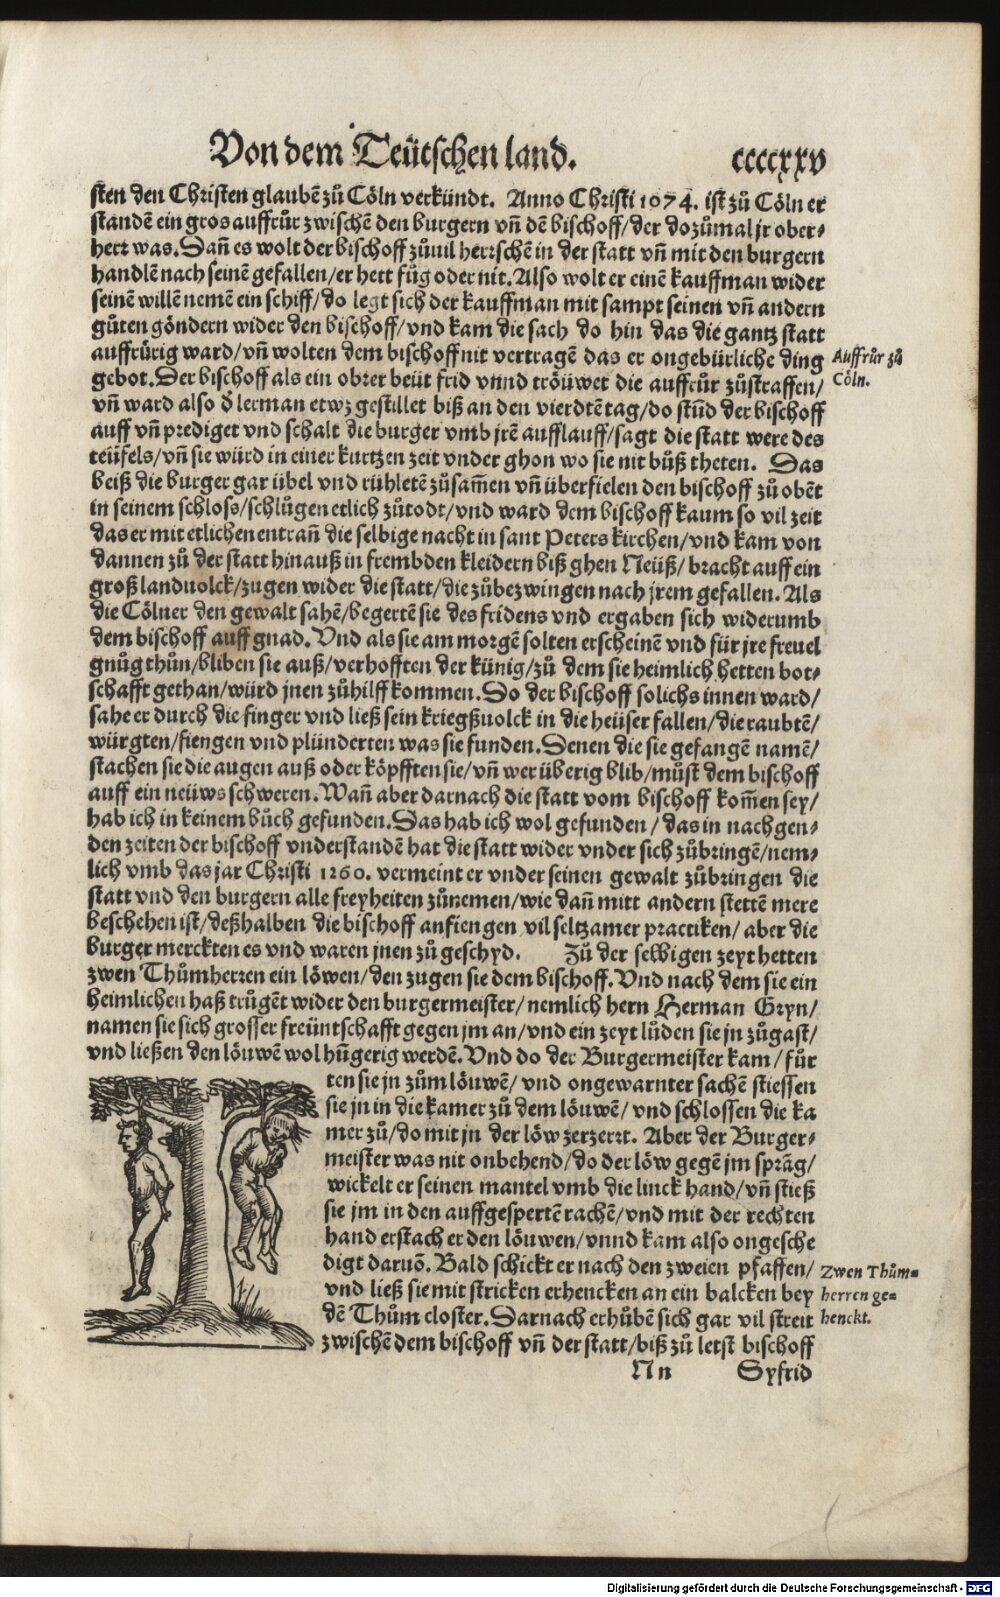 Von dem Teütschen land. ccccxxv
sten den Christen glaubẽ zů Cöln verkündt. Anno Christi 1074. ist zů Cöln er
standẽ ein gros auffrůr zwischẽ den burgern vñ dẽ bischoff/der dozůmal jr ober⸗
herr was. Dañ es wolt der bischoff zůuil herrschẽ in der statt vñ mit den burgern
handlẽ nach seinẽ gefallen/er hett fůg oder nit. Also wolt er einẽ kauffman wider
seinẽ willẽ nemẽ ein schiff/do legt sich der kauffman mit sampt seinen vñ andern
gůten göndern wider den bischoff/vnd kam die sach do hin das die gantz statt
auffrürig ward/vñ wolten dem bischoff nit vertragẽ das er ongebürliche ding
gebot. Der bischoff als ein obrer beüt frid vnnd tröuwet die auffrůr zůstraffen/
Auffrůr zů
Cöln.
vñ ward also d̊ lerman etwz gestillet biß an den vierdtẽ tag/do stůd der bischoff
auff vñ prediget vnd schalt die burger vmb jrẽ aufflauff/sagt die statt were des
teüfels/vñ sie würd in einer kurtzen zeit vnder ghon wo sie nit bůß theten. Das
beiß die burger gar übel vnd rühletẽ zůsam̃en vñ überfielen den bischoff zů obẽt
in seinem schloss/schlůgen etlich zůtodt/vnd ward dem bischoff kaum so vil zeit
das er mit etlichen entrañ die selbige nacht in sant Peters kirchen/vnd kam von
dannen zů der statt hinauß in frembden kleidern biß ghen Neüß/bracht auff ein
groß landuolck/zugen wider die statt/die zůbezwingen nach jrem gefallen. Als
die Cölner den gewalt sahẽ/begertẽ sie des fridens vnd ergaben sich widerumb
dem bischoff auff gnad. Vnd als sie am morgẽ solten erscheinẽ vnd für jre freuel
gnůg thůn/bliben sie auß/verhofften der künig/zů dem sie heimlich hetten bot⸗
schafft gethan/würd jnen zůhilff kommen. Do der bischoff solichs innen ward/
sahe er durch die finger vnd ließ sein kriegßuolck in die heüser fallen/die raubtẽ/
würgten/fiengen vnd plünderten was sie funden. Denen die sie gefangẽ namẽ/
stachen sie die augen auß oder köpfften sie/vñ wer überig blib/můst dem bischoff
auff ein neüws schweren. Wañ aber darnach die statt vom bischoff kom̃en sey/
hab ich in keinem bůch gefunden. Das hab ich wol gefunden/das in nachgen⸗
den zeiten der bischoff vnderstandẽ hat die statt wider vnder sich zůbringẽ/nem⸗
lich vmb das jar Christi 1260. vermeint er vnder seinen gewalt zůbringen die
statt vnd den burgern alle freyheiten zůnemen/wie dañ mitt andern stettẽ mere
beschehen ist/deßhalben die bischoff anfiengen vil seltzamer practiken/aber die
burger merckten es vnd waren jnen zů geschyd. Zů der selbigen zeyt hetten
zwen Thůmherren ein löwen/den zugen sie dem bischoff. Vnd nach dem sie ein
heimlichen haß trůgẽt wider den burgermeister/nemlich hern Herman Gryn/
namen sie sich grosser freüntschafft gegen jm an/vnd ein zeyt lůden sie jn zůgast/
vnd ließen den löuwẽ wol hũgerig werdẽ. Vnd do der Burgermeister kam/für
ten sie jn zům löuwẽ/vnd ongewarnter sachẽ stiessen
sie jn in die kamer zů dem löuwẽ/vnd schlossen die ka
mer zů/do mit jn der löw zerzerrt. Aber der Burger⸗
meister was nit onbehend/do der löw gegẽ jm sprãg/
wickelt er seinen mantel vmb die linck hand/vñ stieß
sie jm in den auffgespertẽ rachẽ/vnd mit der rechten
hand erstach er den löuwen/vnnd kam also ongesche
digt daruõ. Bald schickt er nach den zweien pfaffen/
vnd ließ sie mit stricken erhencken an ein balcken bey
dẽ Thům closter. Darnach erhůbẽ sich gar vil streit
Zwen Thům⸗
herren ge⸗
henckt.
zwischẽ dem bischoff vñ der statt/biß zů letst bischoff
Nn Syfrid
Digitalisierung gefördert durch die Deutsche Forschungsgemeinschaft - DFG